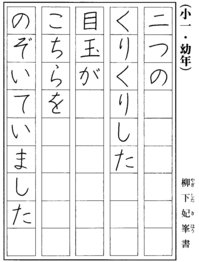 (小一・幼年)
二つの
くりくりした
目玉が
こちらを
のぞいていました
柳下妃峯書
やぎしたきほう